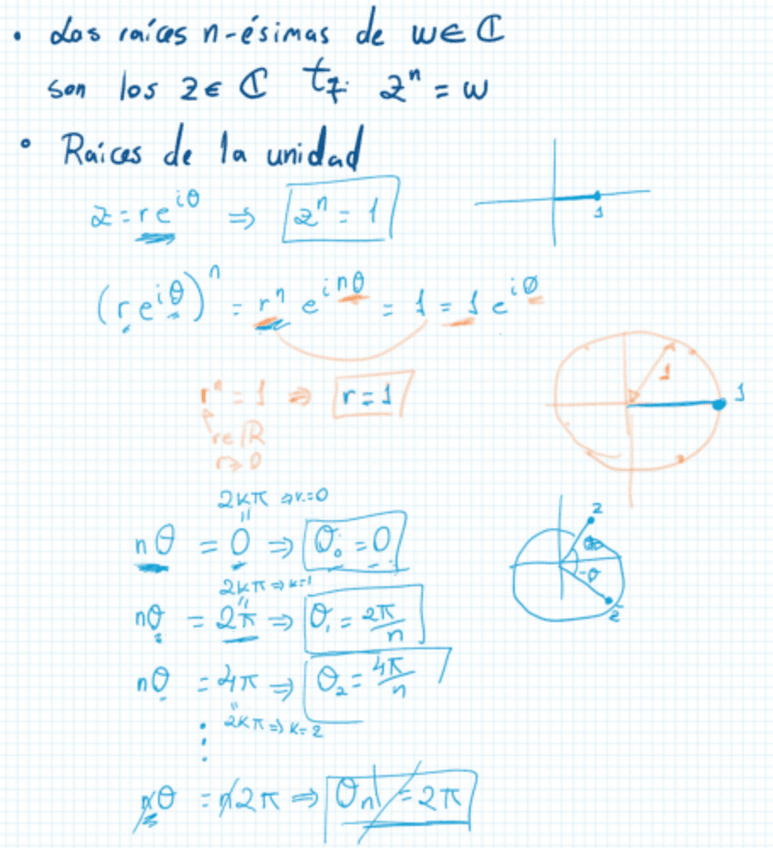 • Las raíces n-ésimas de w∈ ℂ
son los z∈ ℂ tq. zⁿ = w
• Raíces de la unidad
z = re^{iθ} ⇒ zⁿ = 1
1
(re^{iθ})ⁿ = rⁿ e^{inθ} = 1 = 1 e^{i0}
rⁿ = 1 ⇒ r = 1
1
1
r∈ℝ
r>0
2kπ ⇒ k=0
z
nθ = 0 ⇒ θ₀ = 0
-θ
z̄
2kπ ⇒ k=1
nθ = 2π ⇒ θ₁ = 2π/n
nθ = 4π ⇒ θ₂ = 4π/n
2kπ ⇒ k=2
nθ = n2π ⇒ θₙ = 2π